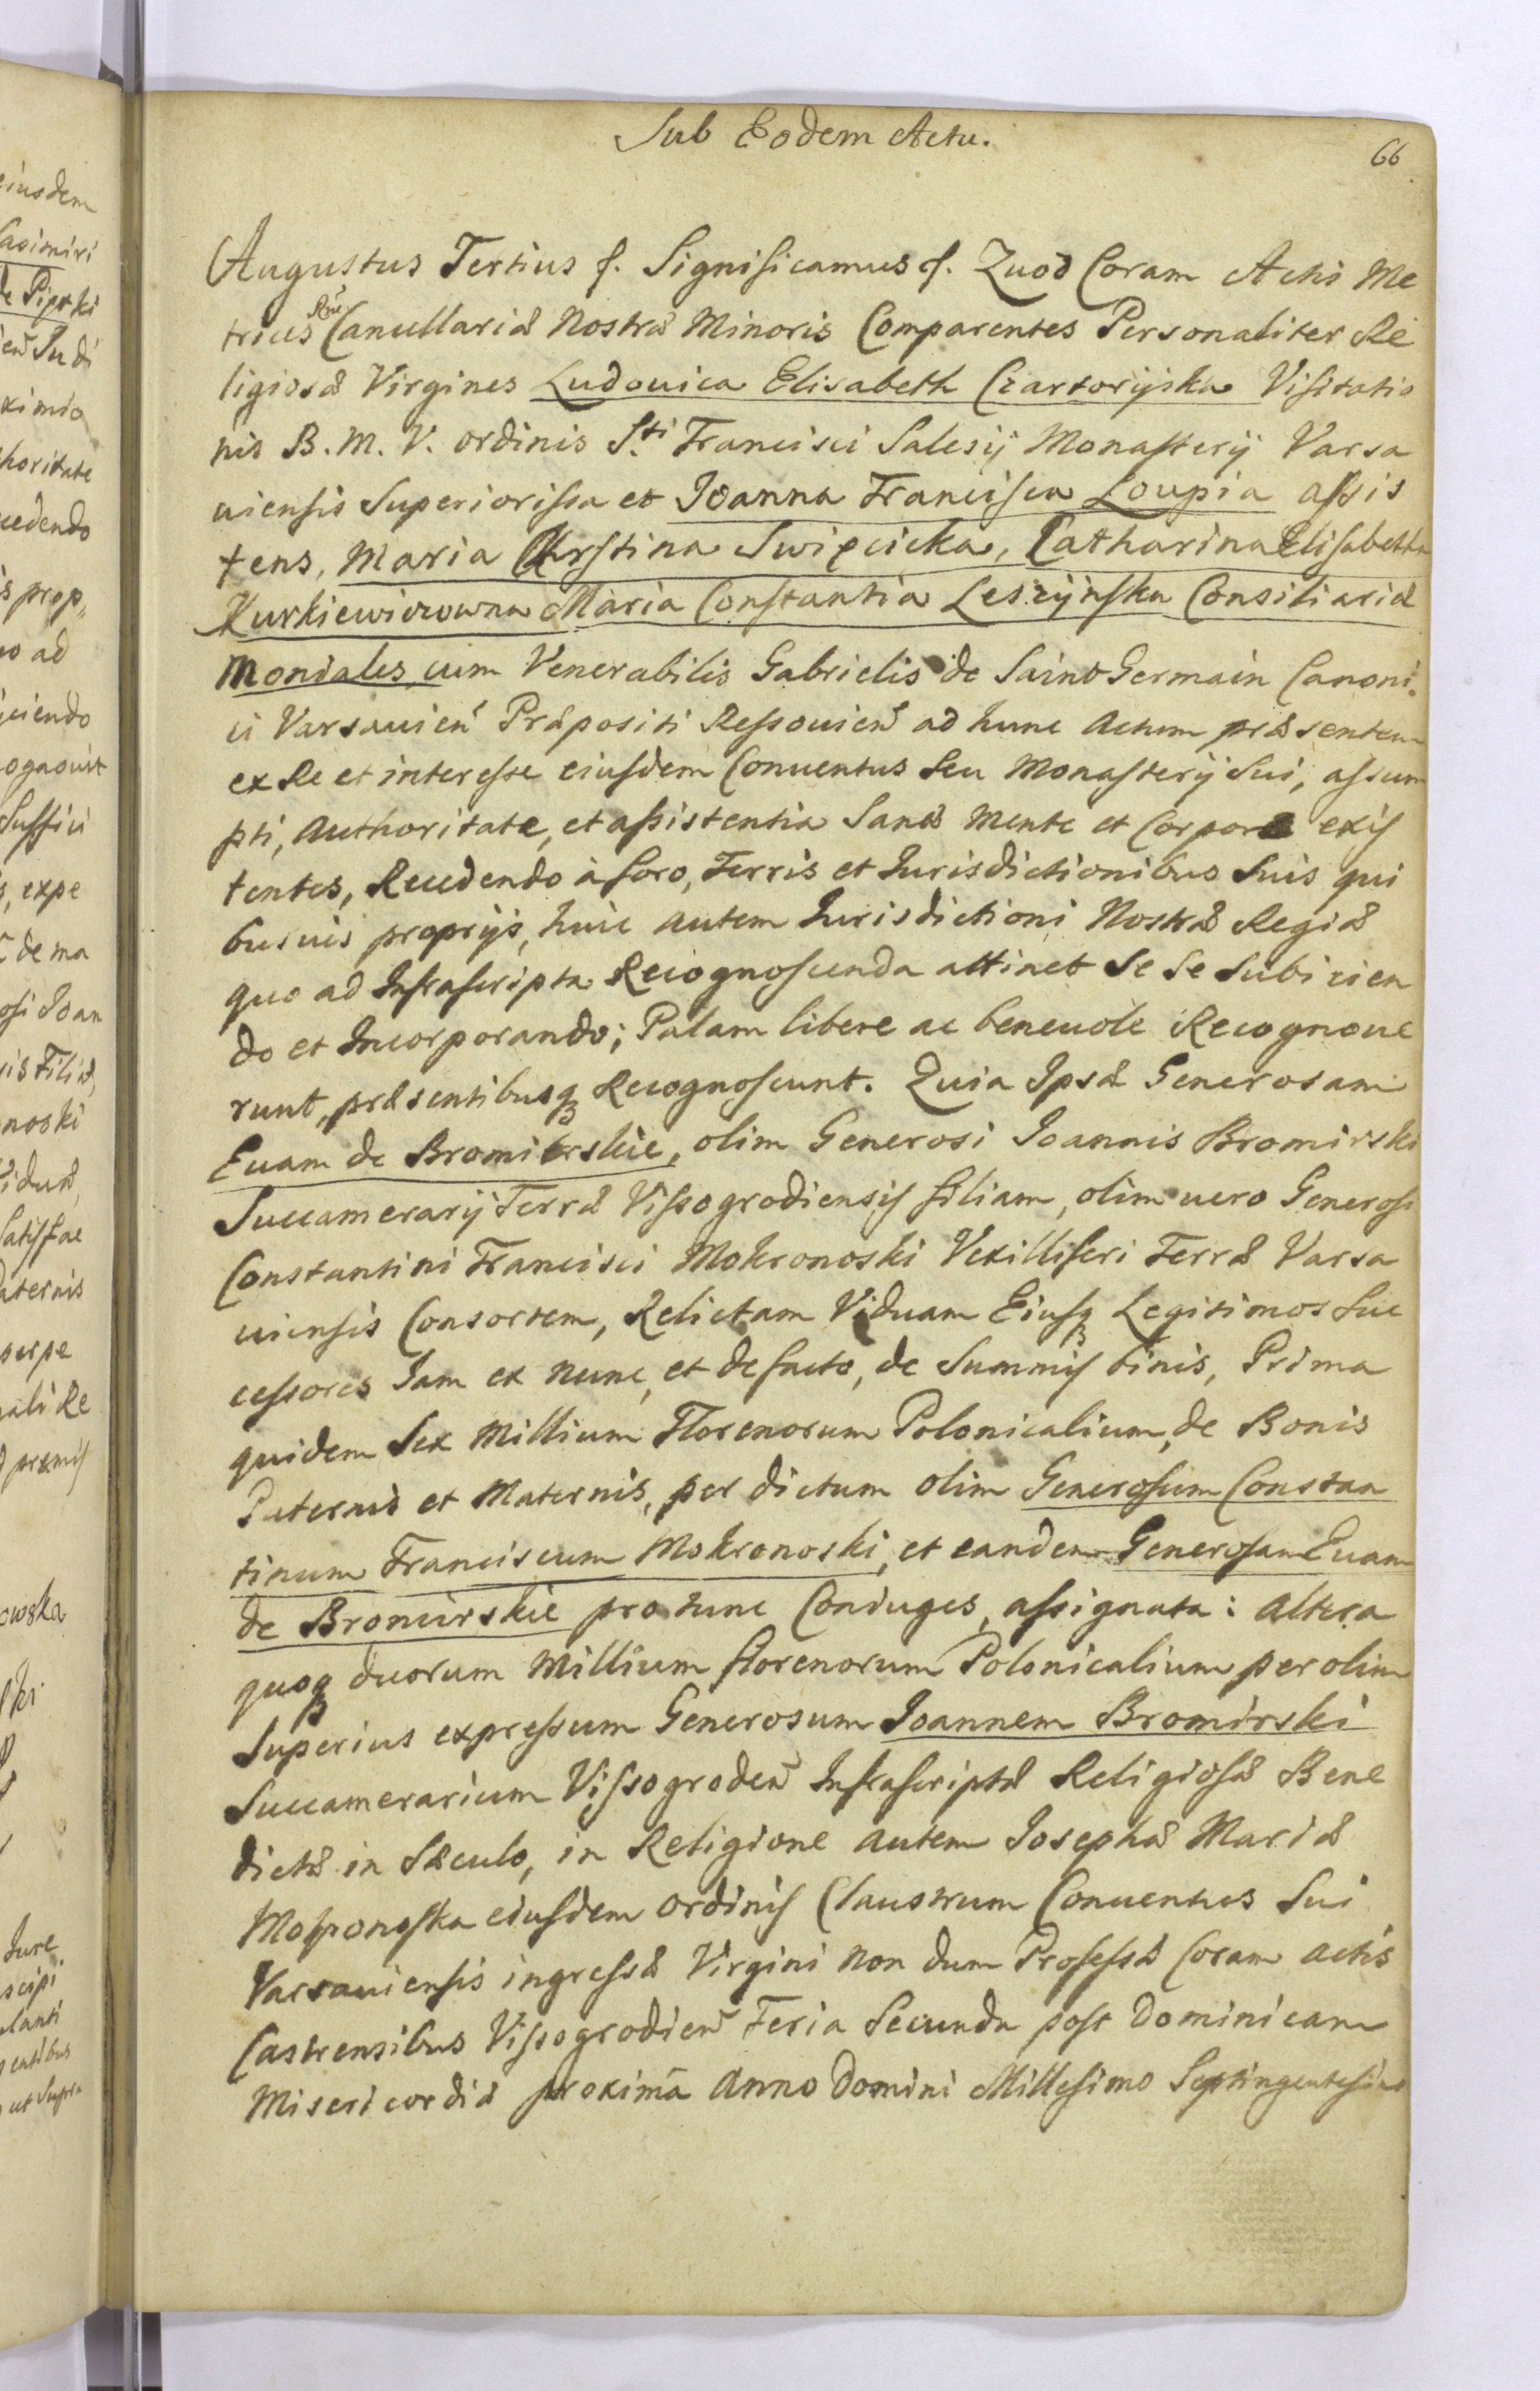 Sub Eodem Actu.
66
Augustus Tertius f. Significamus f. Quod Coram Actis Me
trices Rñi Cancellariæ Nostræ Minoris Comparentes Personaliter Re
ligiosæ Virgines Ludouica Elisabeth Czartoryska Visitatio
nis B. M. V. ordinis S.ti Francisci Salesij Monasterij Varsa
uiensis Superiorissa et Joanna Francisca Loupia assis
tens, Maria Chrstina Swięcicka, Catharina Elisabetha
Kurkiewiczowna Maria Constantia Leszczynska Consiliariæ
Moniales cum Venerabilis Gabrielis de Saint Germain Canoni
ci Varsauień Præpositi Ressouień ad hunc Actum præsentem
ex Re et interesse eiusdem Conuentus Seu Monasterij Sui, assum
pti, Authoritate, et assistentia Sanæ Mente et Corpore exis
tentes, Recedendo à foro, Terris et Jurisdictionibus Suis qui
busuis proprijs, huic autem Jurisdictioni Nostræ Regiæ
quo ad Infrascripta Recognoscenda attinet Se Se Subicien
do et Incorporando; Palam libere ac beneuole Recognoue
runt, præsentibusq Recognoscunt. Quia Ipsæ Generosam
Euam de Bromierskie, olim Generosi Joannis Bromirski
Succamerarij Terræ Vissogrodiensis filiam, olim uero Generosi
Constantini Francisci Mokronoski Vexilliferi Terræ Varsa
uiensis Consortem, Relictam Viduam Eiusq Legitimos Suc
cessores Jam ex nunc, et de facto, de Summis binis, Prima
quidem Sex Millium Florenorum Polonicalium, de Bonis
Paternis et Maternis, per dictum olim Generosum Constan
tinum Franciscum Mokronoski, et eandem Generosam Euam
de Bromirskie pro tunc Coniuges, assignata: altera
quoq duorum Millium florenorum Polonicalium per olim
Superius expressum Generosum Joannem Bromirski
Succamerarium Vissogrodeń Infrascriptæ Religiosæ Bene
dictæ in Sæculo, in Religione autem Josephæ Mariæ
Mokronoska eiusdem ordinis Claustrum Conuentus Sui
Varsauiensis ingressæ Virgini non dum Professæ Coram actis
Castrensibus Vissogrodień Feria Secunda post Dominicam
Misericordiæ proximã Anno Domini Millesimo Septingentesimo